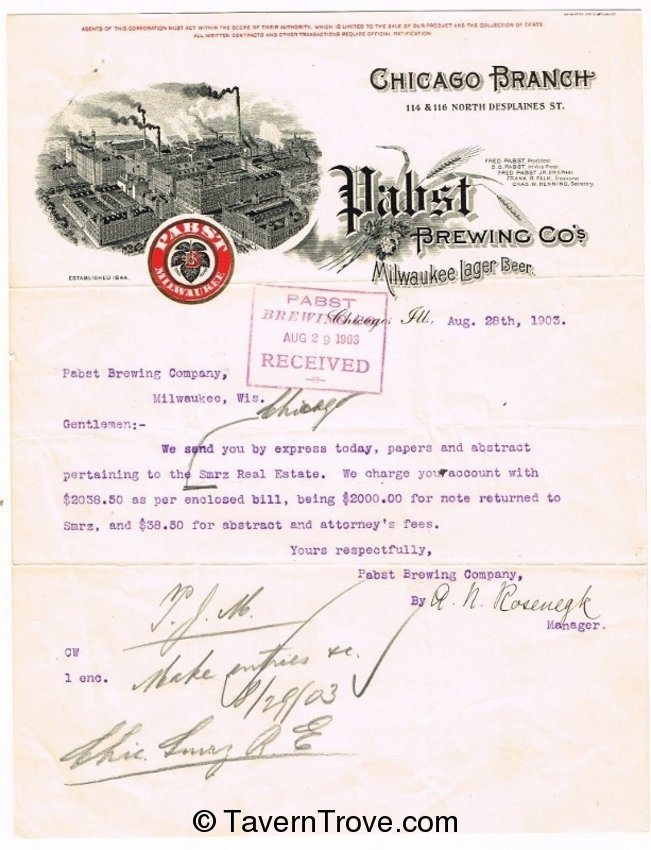 AGENTS OF THIS CORPORATION MUST ACT WITHIN THE SCOPE OF THEIR AUTHORITY, WHICH IS LIMITED TO THE SALE OF OUR PRODUCT AND THE COLLECTION OF DEBTS.
ALL WRITTEN CONTRACTS AND OTHER TRANSACTIONS REQUIRE OFFICIAL RATIFICATION.
CHICAGO BRANCH
114 & 116 NORTH DESPLAINES ST.
FRED PABST President
G. G. PABST, 1st Vice Prest.
FRED PABST JR. 2nd V. Prest.
FRANK R. FALK, Treasurer
CHAS. W. HENNING, Secretary.
Pabst
BREWING CO'S
Milwaukee Lager Beer.
PABST
B
MILWAUKEE
ESTABLISHED 1844.
PABST
BREWING CO.
AUG 29 1903
RECEIVED
Chicago, Ill., Aug. 28th, 1903.
Pabst Brewing Company,
Milwaukee, Wis.
Chicago
Gentlemen:-
We send you by express today, papers and abstract
pertaining to the Smrz Real Estate. We charge your account with
$2038.50 as per enclosed bill, being $2000.00 for note returned to
Smrz, and $38.50 for abstract and attorney's fees.
Yours respectfully,
Pabst Brewing Company,
By A. N. Rosenegk
Manager.
T. J. M.
CW
1 enc.
Make entries &c.
8/29/03
Chic. Smrz R E
© TavernTrove.com